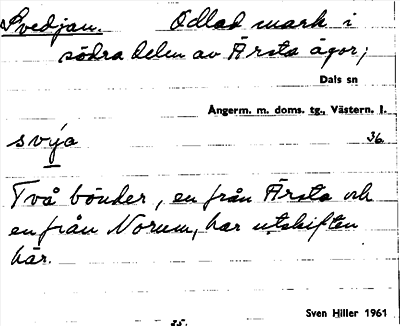 Svedjan. Odlad mark i
södra delen av Ärsta ägor;
Dals sn
Ångerm. m. doms. tg., Västern. l.
svýa
36.
Två bönder, en från Ärsta och
en från Norum, har utskiften
här.
Sven Hiller 1961
35.